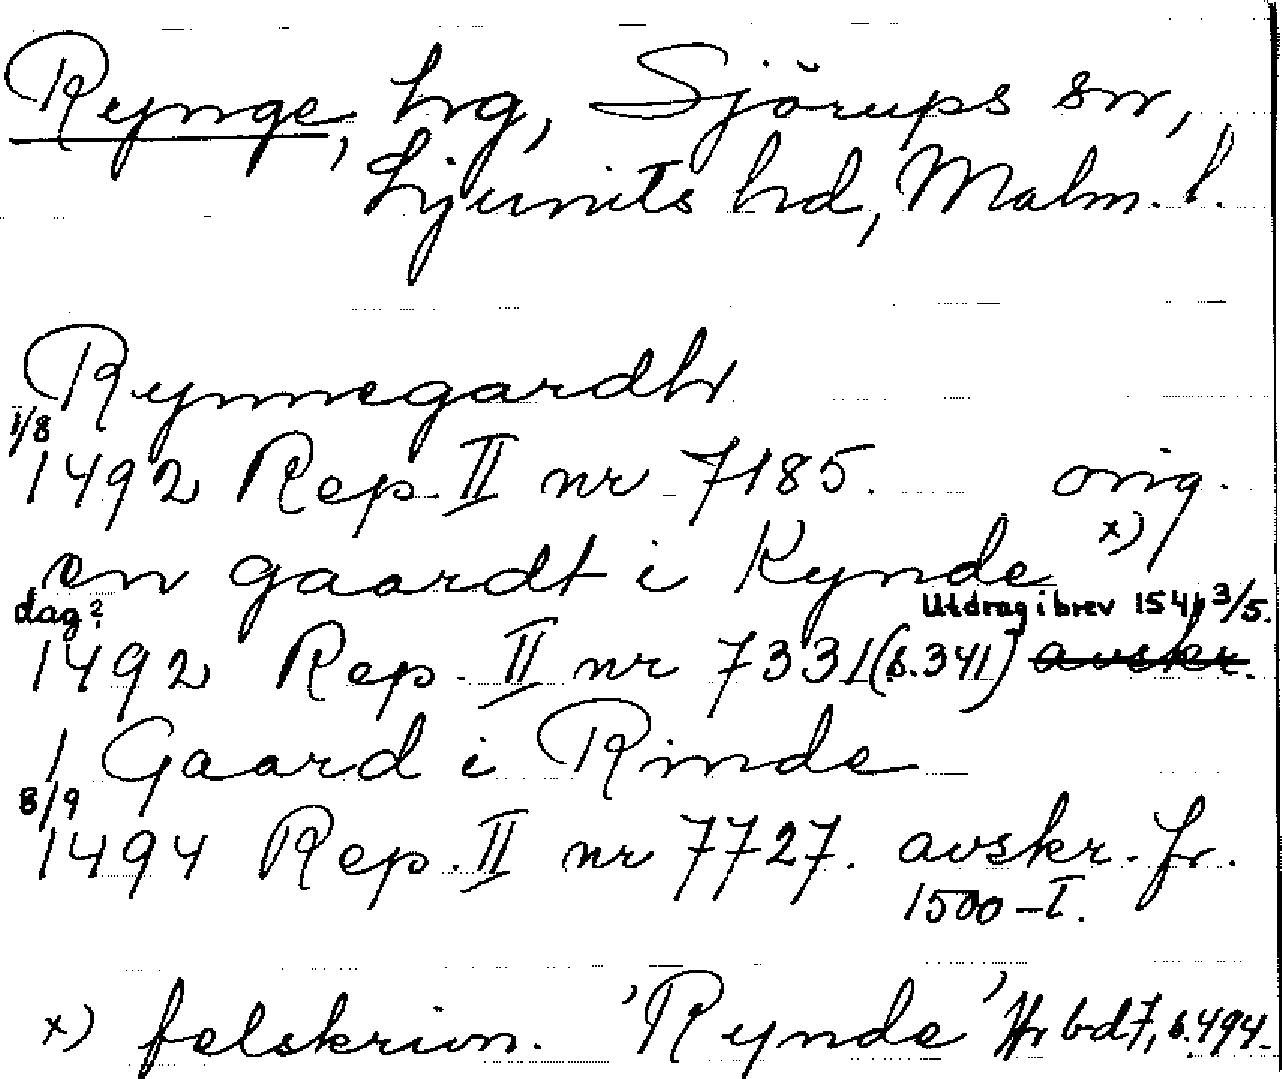 Rynge, hrg, Sjörups sn,
Ljunits hd, Malm. l.
Rynnegardh
1/8
1492 Rep. II nr 7185. orig.
en gaardt i Kynde x)
dag? Utdrag i brev 1541 3/5.
1492 Rep. II nr 7331 (s. 341) avskr.
1 Gaard i Rinde
8/9
1494 Rep. II nr 7727. avskr. fr.
1500-T.
x) felskrivn. 'Rynde' Jfr bd 7, s. 494.